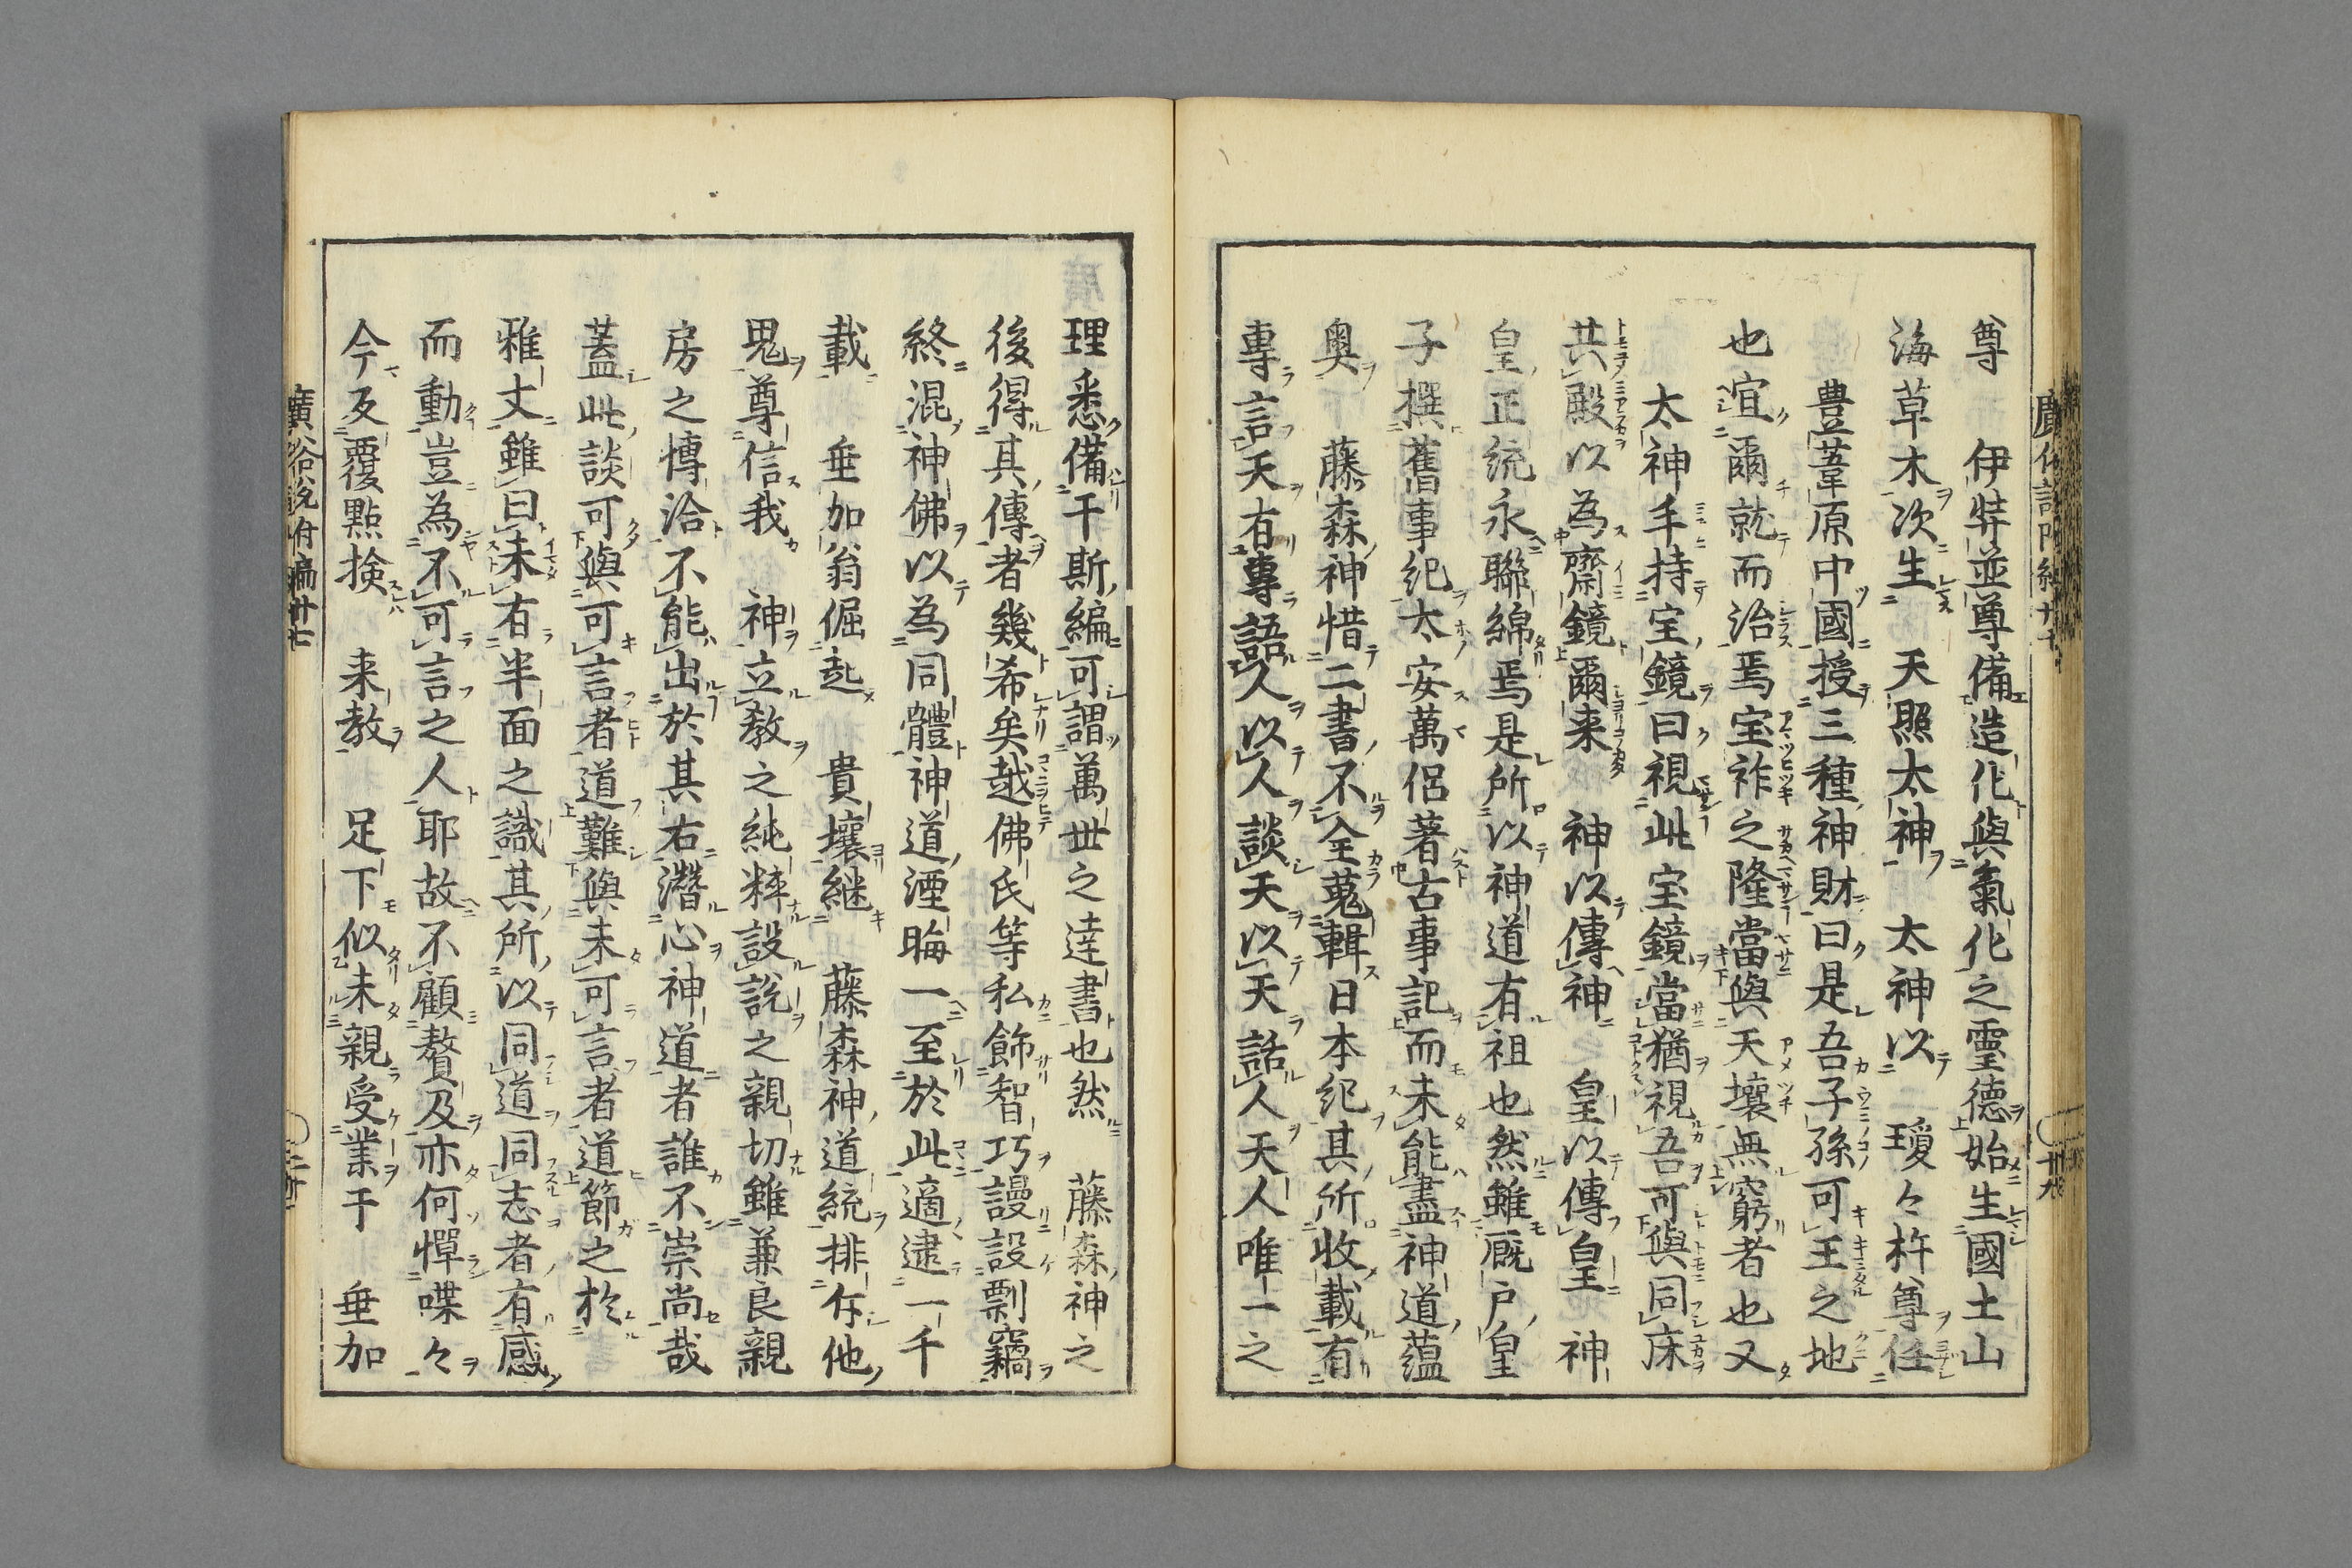 尊　伊弉並尊備造化與氣化之霊德始生國土山
海草木次生　天照太神　太神以　瓊々杵尊任
豊葦原中國授三種神財曰是吾子孫可王之地
也宜爾就而治焉宝祚之隆當與天壤無窮者也又
太神手持宝鏡曰視此宝鏡當猶視吾可與同床
共殿以為齋鏡爾来　神以傳神　皇以傳皇　神
皇正統永聯綿焉是所以神道有祖也然雖厩戸皇
子撰舊事紀太安萬侶著古事記而未能盡神道蘊
奥　藤森神惜二書不全蒐輯日本紀其所收載有
専言天有専語人以人談天以天話人天人唯一之
理悉備于斯編可謂萬世之達書也然　藤森神之
後得其傳者幾希矣越佛氏等私飾智巧謾設剽竊
終混神佛以為同體神道湮晦一至於此適逮一千
載　垂加翁倔起　貴壤継　藤森神道統排斥他
鬼尊信我　神立教之純粹設說之親切雖兼良親
房之博洽不能出於其右潛心神道者誰不崇尚哉
蓋此談可與可言者道難與未可言者道節之於
雅丈雖曰未有半面之識其所以同道同志者有感
而動豈為不可言之人耶故不顧贅及亦何憚喋々
今及覆點検　来教　足下似未親受業于　垂加
廣俗説附編廿七